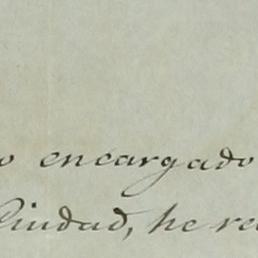 o encargado
Ciudad, he re